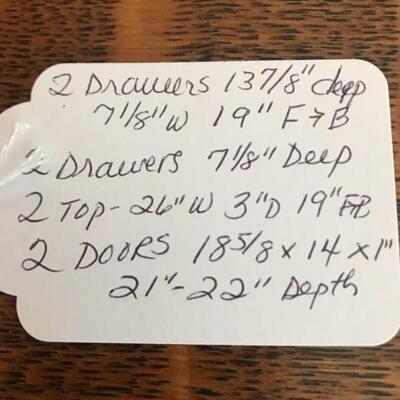 2 Drawers 13 7/8" deep
7 1/8" W 19" F→B
2 Drawers 7 1/8" Deep
2 Top - 26" W 3" D 19" F→B
2 DOORS 18 5/8 x 14 x 1"
21" - 22" Depth